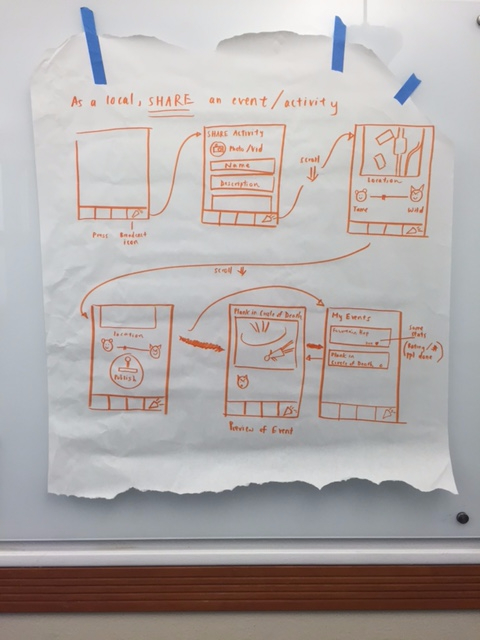 As a local, SHARE an event/activity
SHARE Activity
Photo/Vid
Name
Description
scroll
Location
Tame
Wild
Press Broadcast
icon
scroll
Location
Publish
Plank in Circle of Death
Preview of Event
My Events
Mountain Hop
Plank in
Circle of Death
Some
stats
(Rating/#
ppl done)